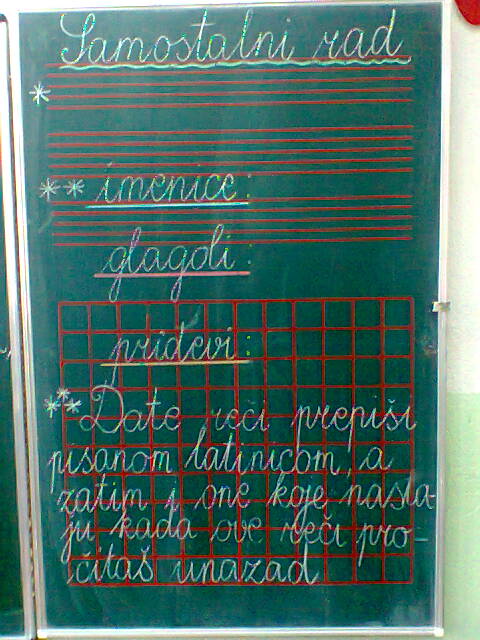 Samostalni rad
*
** imenice:
glagoli:
pridevi:
*** Date reči prepiši
pisanom latinicom, a
zatim i one koje nasta-
ju kada ove reči pro-
čitaš unazad